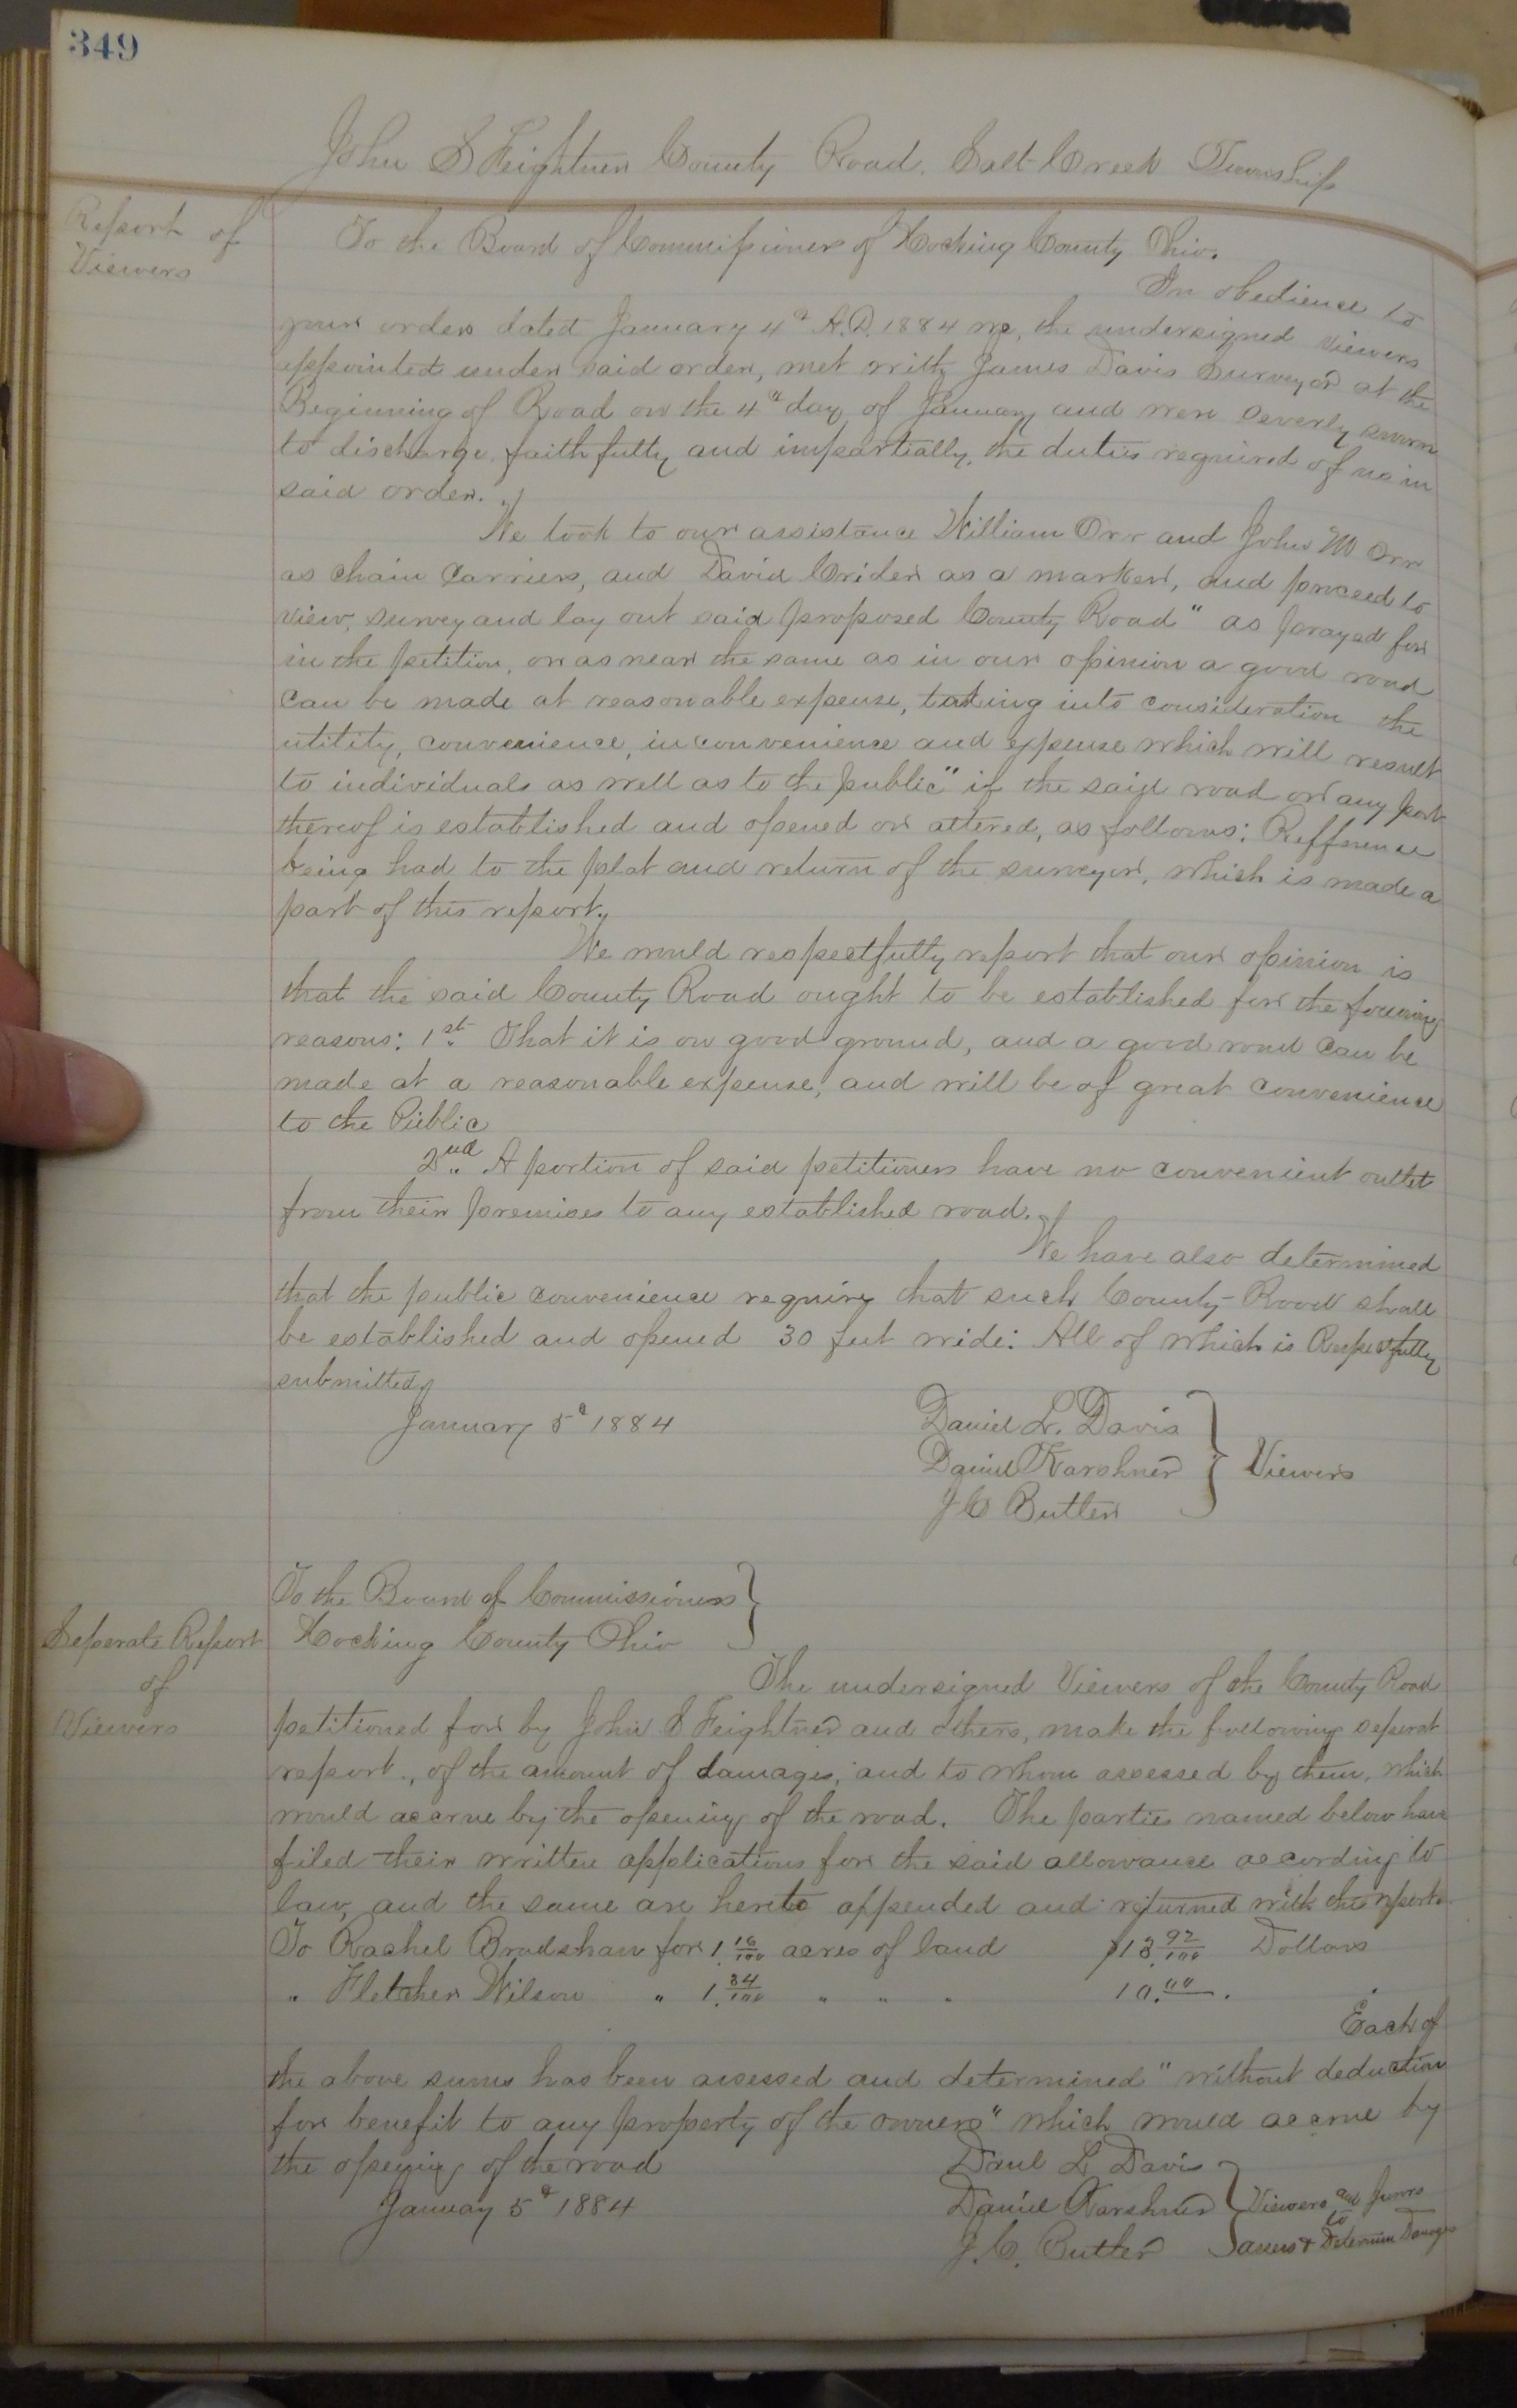 349
John S Feightner County Road. Salt Creek Township
Report of
Viewers
To the Board of Commissioners of Hocking County Ohio.
In obedience to
your order dated January 4th A.D. 1884 we, the undersigned viewers
appointed under said order, met with James Davis Surveyor at the
Beginning of Road on the 4th day of January and were severly sworn
to discharge faithfully and impartially, the duties required of us in
said order.
We took to our assistance William Orr and John M Orr
as chain Carriers, and David Crider as a marker, and proceed to
view, survey and lay out said proposed County Road " as prayed for
in the petition, or as near the same as in our opinion a good road
can be made at reasonable expense, taking into consideration the
utility, convenience, inconvenience and expense which will result
to individuals as well as to the public" if the said road or any part
thereof is established and opened or altered, as follows: Refference
being had to the plat and return of the surveyor, which is made a
part of this report,
We would respectfully report that our opinion is
that the said County Road ought to be established for the
reasons: 1st. That it is on good ground, and a good road can be
made at a reasonable expense, and will be of great convenience
to the Public
2nd. A portion of said petitioners have no convenient outlet
from their premises to any established road.
We have also determined
that the public convenience require that such County Road shall
be established and opened 30 feet wide: All of which is Respectfully
submitted,
January 5th 1884
Daniel L. Davis
Daniel Karshner } Viewers
J C Butler
To the Board of Commissioners }
Seperate Report
of
Viewers
Hocking County Ohio
The undersigned Viewers of the County Road
petitioned for by John S Feightner and others, make the following seperat
report., of the amount of damages, and to whom assessed by them, which
would accrue by the opening of the road. The parties named below have
filed their written applications for the said allowance according to
law, and the same are hereto appended and returned with this report.
To Rachel Bradshaw for 1.16/100 acres of land $13.92/100 Dollars
" Fletcher Wilson " 1.34/100 " " " 10.00.
Each of
the above sums has been assessed and determined "without deduction
for benefit to any property of the owners" which would accrue by
the opening of the road
January 5th 1884
Danl L Davis
Daniel Karshner } Viewers and Jurors
J. C. Butler to assess & Determin Damages